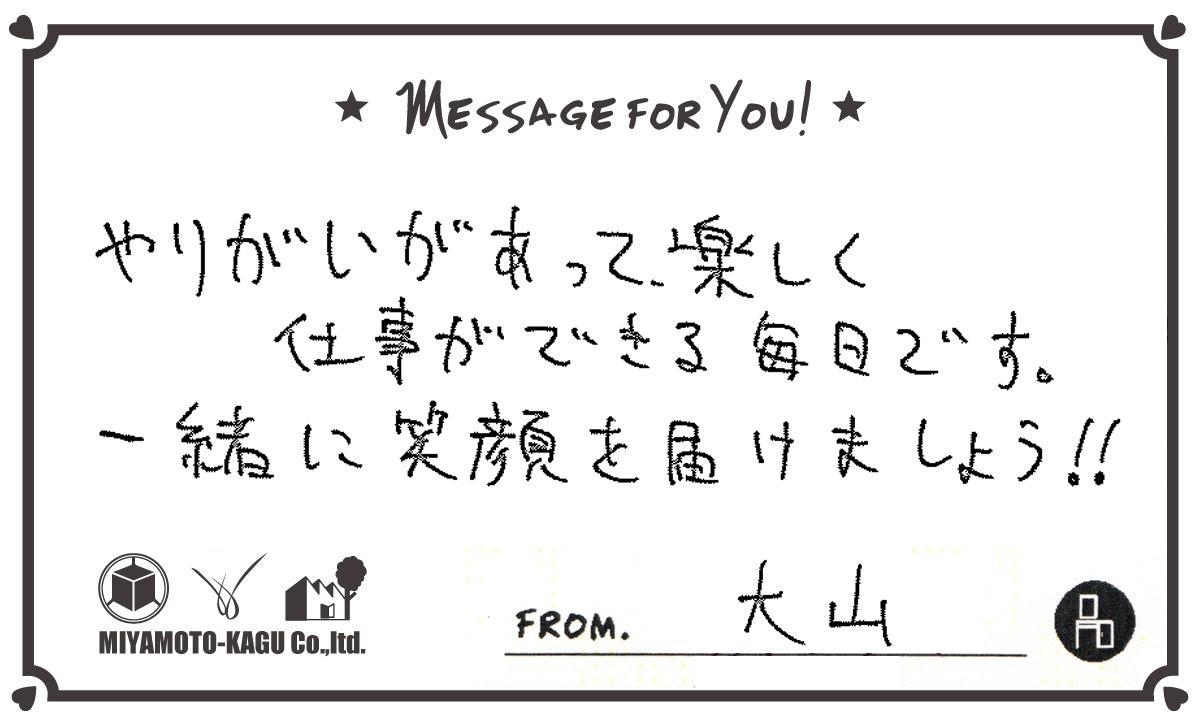 ★ MESSAGE FOR YOU! ★
やりがいがあって、楽しく
仕事ができる毎日です。
一緒に笑顔を届けましょう!!
MIYAMOTO-KAGU Co.,ltd.
FROM. 大山